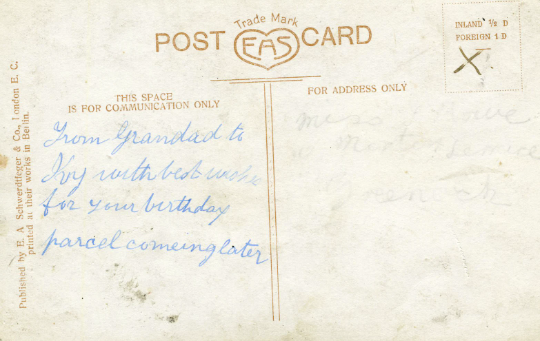 Trade Mark
POST EAS CARD
INLAND ½ D
FOREIGN 1 D
THIS SPACE
IS FOR COMMUNICATION ONLY
FOR ADDRESS ONLY
From Grandad to
Ivy with best wishes
for your birthday
parcel comeing later
Miss
Published by E. A. Schwerdtfeger & Co., London E. C.
printed at their works in Berlin.